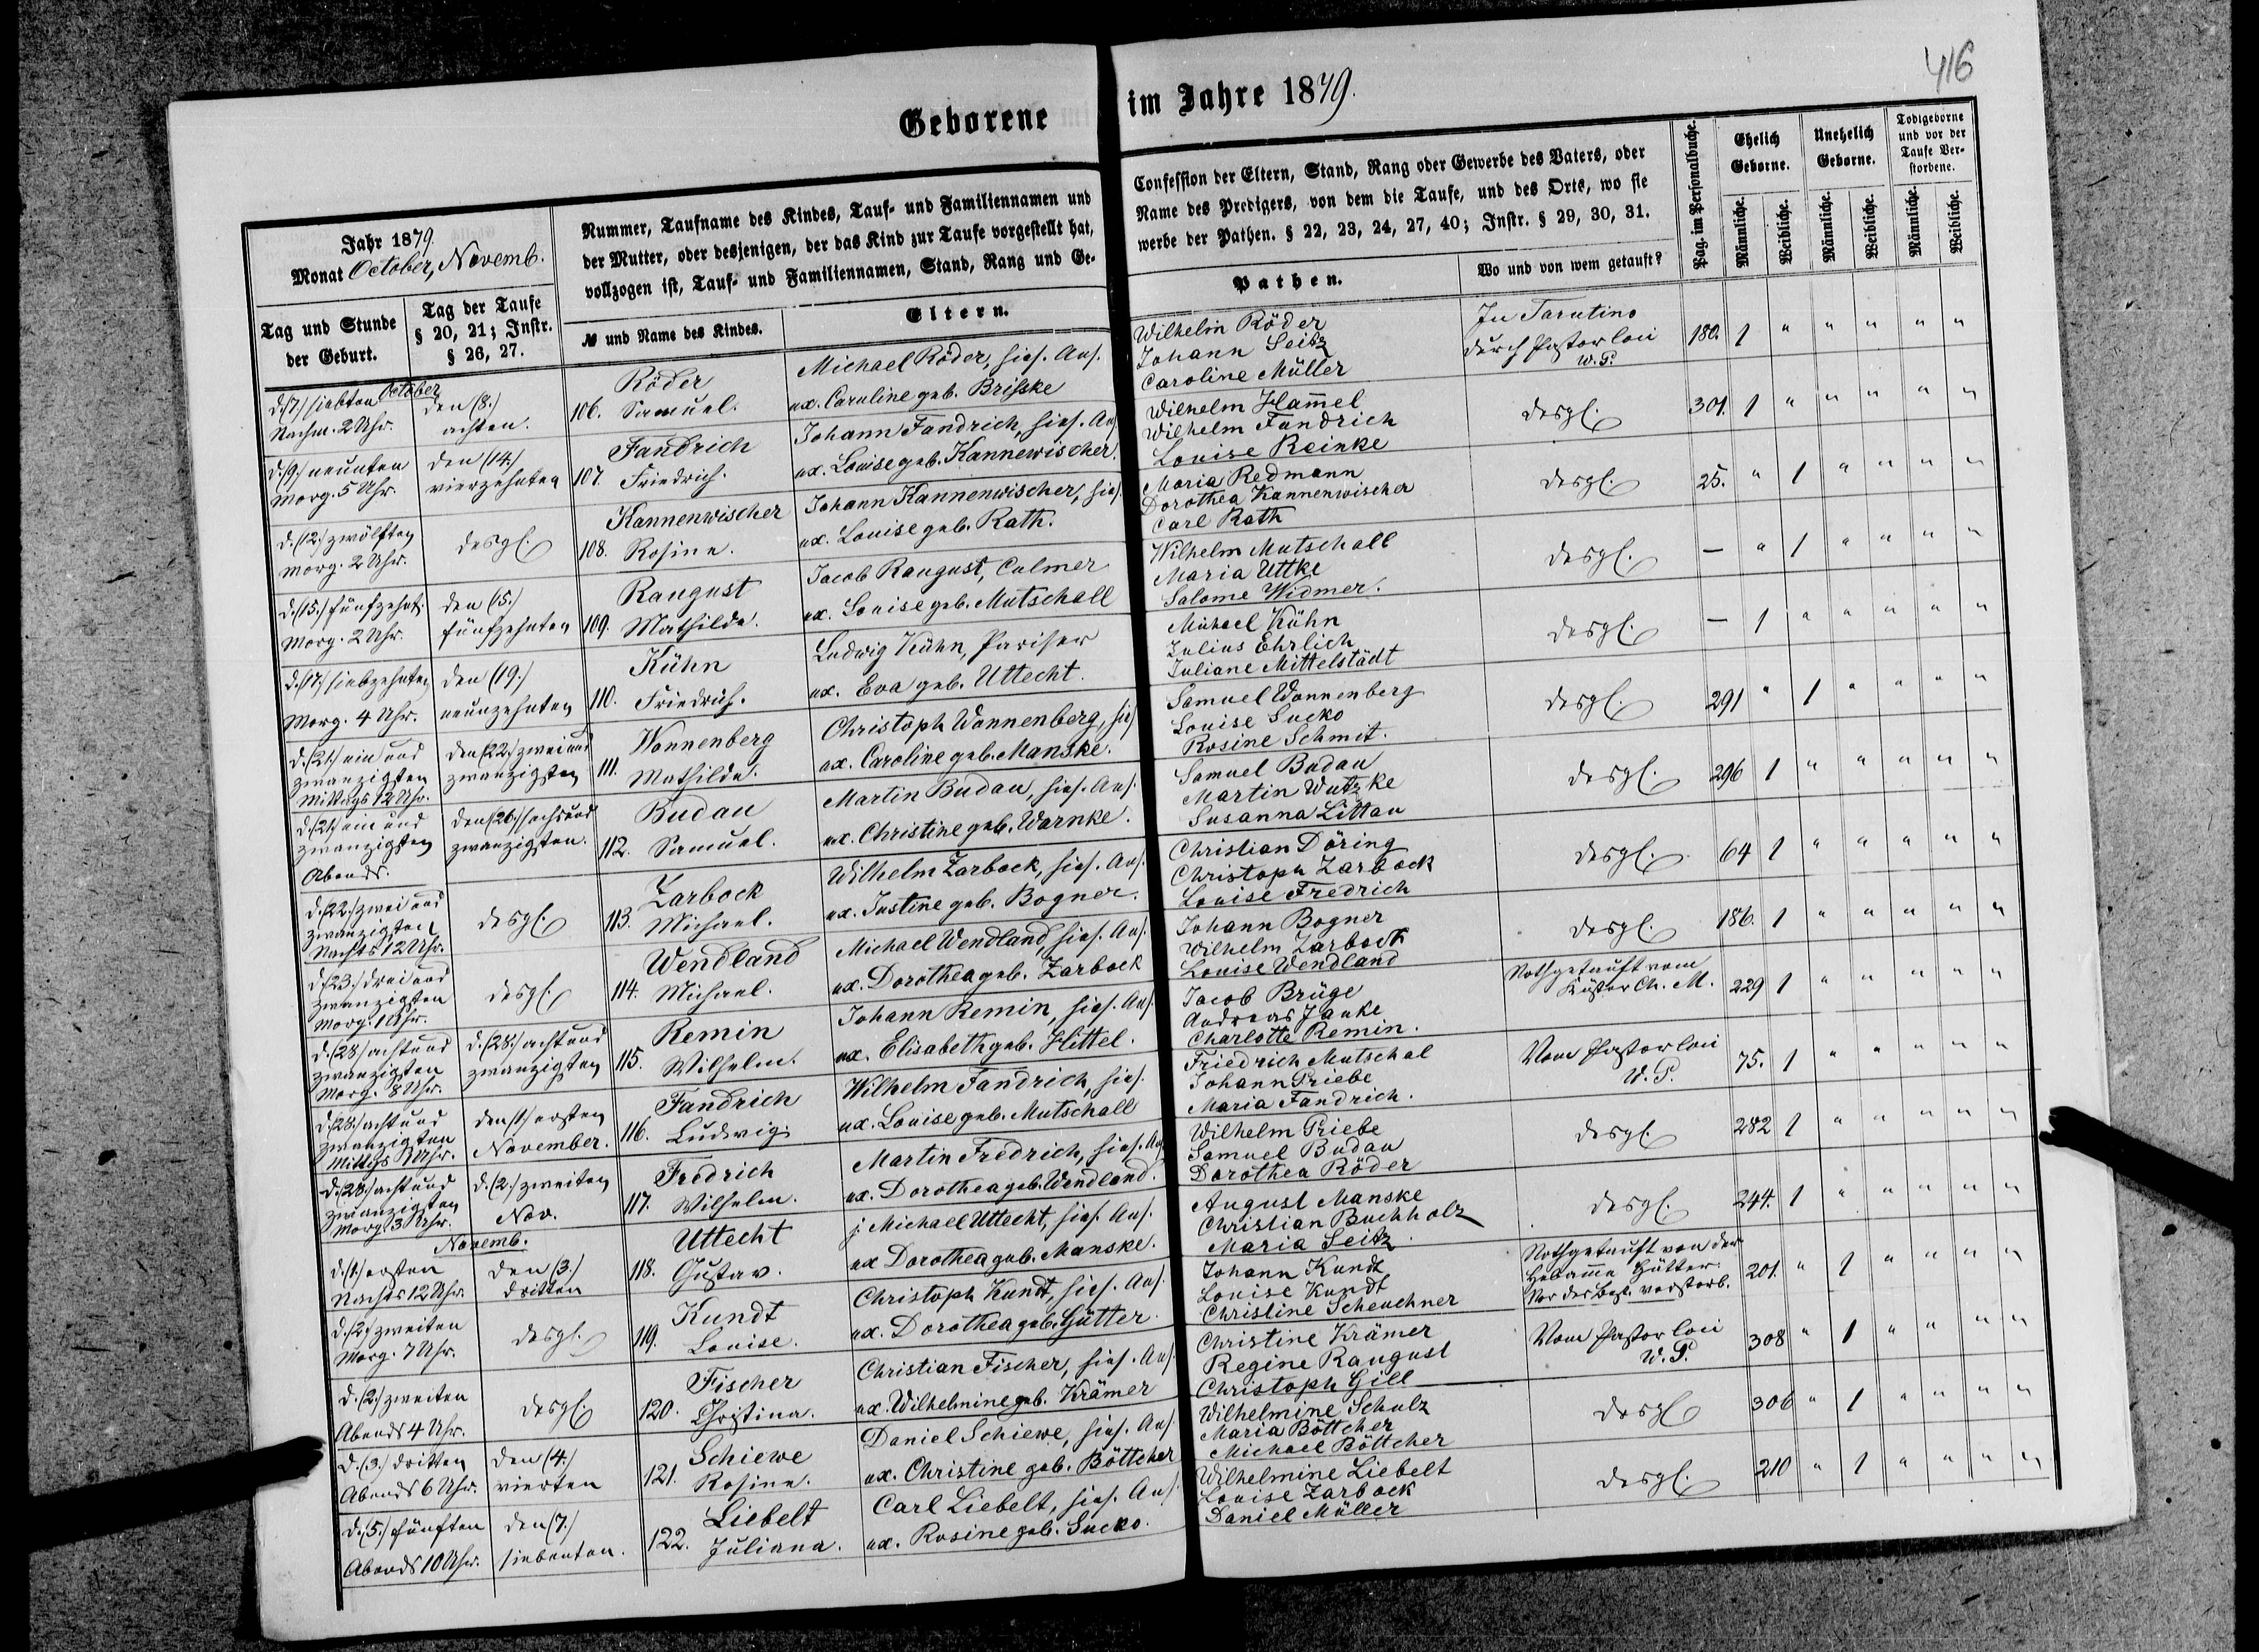 416
Geborene im Jahre 1879.
Jahr 1879.
Monat October, Novemb.
Nummer, Taufname des Kindes, Tauf- und Familiennamen und
der Mutter, oder desjenigen, der das Kind zur Taufe vorgestellt hat,
vollzogen ist, Tauf- und Familiennamen, Stand, Rang und Ge-
Confession der Eltern, Stand, Rang oder Gewerbe des Vaters, oder
Name des Predigers, von dem die Taufe, und des Orts, wo sie
werbe der Pathen. § 22, 23, 24, 27, 40; Instr. § 29, 30, 31.
Pag. im Personalbuche.
Ehelich Geborne.
Unehelich Geborne.
Todtgeborne und vor der Taufe Verstorbene.
Männliche. Weibliche. Männliche. Weibliche. Männliche. Weibliche.
Tag und Stunde der Geburt.
Tag der Taufe § 20, 21; Instr. § 26, 27.
№ und Name des Kindes.
Eltern.
Pathen.
Wo und von wem getauft?
October
d. (7.) siebten
Nachm. 2 Uhr.
den (8.)
achten.
Röder
106. Samuel.
Michael Röder, hies. Ans.
ux. Caroline geb. Briske
Wilhelm Röder
Johann Seitz
Caroline Müller
In Tarutino
durch Pastor loci
W. P.
180. 1 " " " " "
d. (9.) neunten
Morg. 5 Uhr.
den (14.)
vierzehnten
Fandrich
107. Friedrich.
Johann Fandrich, hies. Ans
ux. Louise geb. Kannewischer.
Wilhelm Hamel
Wilhelm Fandrich
Louise Reinke
desgl.
301. 1 " " " " "
d. (12.) zwölften
Morg. 2 Uhr.
desgl.
Kannenwischer
108. Rosine.
Johann Kannenwischer, hies.
ux. Louise geb. Rath.
Maria Redmann
Dorothea Kannenwischer
Carl Rath
desgl.
25. " 1 " " " "
d. (15.) fünfzehnt.
Morg. 2 Uhr.
den (15.)
fünfzehnten
Raugust
109. Mathilde.
Jacob Raugust, Culmer
ux. Louise geb. Mutschall
Wilhelm Mutschall
Maria Uttke
Salome Widmer.
desgl.
— " 1 " " " "
d. (17.) siebzehnten
Morg. 4 Uhr.
den (19.)
neunzehnten
Kühn
110. Friedrich.
Ludwig Kühn, Pariser
ux. Eva geb. Uttecht.
Michael Kühn
Julius Ehrlich
Juliane Mittelstädt
desgl.
— 1 " " " " "
d. (21.) ein und
zwanzigsten
Mittags 12 Uhr.
den (22.) zwei und
zwanzigsten
Wonnenberg
111. Mathilde.
Christoph Wonnenberg, hies
ux. Caroline geb. Manske.
Samuel Wonnenberg
Louise Sucko
Rosine Schmit.
desgl.
291 " 1 " " " "
d. (21.) ein und
zwanzigsten
Abends.
den (26.) sechs und
zwanzigsten.
Budau
112. Samuel.
Martin Budau, hies. Ans.
ux. Christine geb. Warnke.
Samuel Budau
Martin Wutzke
Susanna Littau
desgl.
296 1 " " " " "
d. (22.) zwei und
zwanzigsten
Nachts 12 Uhr.
desgl.
Zarbock
113. Michael.
Wilhelm Zarbock, hies. Ans
ux. Justine geb. Bogner.
Christian Döring
Christoph Zarbock
Louise Fredrich
desgl.
64 1 " " " " "
d. (23.) drei und
zwanzigsten
Morg. 1 Uhr.
desgl.
Wendland
114. Michael.
Michael Wendland, hies. Ans.
ux. Dorothea geb. Zarbock
Johann Bogner
Wilhelm Zarbock
Louise Wendland
desgl.
186. 1 " " " " "
d. (28.) acht und
zwanzigsten
Morg. 8 Uhr.
d. (28.) acht und
zwanzigsten
Remin
115. Wilhelm.
Johann Remin, hies. Ans.
ux. Elisabeth geb. Hittel.
Jacob Brüge
Andreas Janke
Charlotte Remin.
Nothgetauft vom
Küster Ch. M.
229 1 " " " " "
d. (28.) acht und
zwanzigsten
Mittgs 1 Uhr.
den (1.) ersten
November.
Fandrich
116. Ludwig.
Wilhelm Fandrich, hies.
ux. Louise geb. Mutschall
Friedrich Mutschal
Johann Priebe
Maria Fandrich.
Vom Pastor loci
W. P.
75. 1 " " " " "
d. (28.) acht und
zwanzigsten
Morg. 3 Uhr.
d. (2.) zweiten
Nov.
Fredrich
117. Wilhelm.
Martin Fredrich, hies. Ans
ux. Dorothea geb. Wendland.
Wilhelm Priebe
Samuel Budau
Dorothea Röder
desgl.
282 1 " " " " "
Novemb.
d. (1.) ersten
Nachts 12 Uhr.
den (3.)
dritten
Uttecht
118. Gustav.
j. Michael Uttecht, hies. Ans.
ux Dorothea geb. Manske.
August Manske
Christian Buchholz
Maria Seitz.
desgl.
244. 1 " " " " "
d. (2.) zweiten
Morg. 7 Uhr.
desgl.
Kundt
119. Louise.
Christoph Kundt, hies. Ans.
ux. Dorothea geb. Gütter.
Johann Kundt
Louise Kundt
Christine Scheuchner
Nothgetauft von der
Hebamme Gütter.
Vor der Best. verstorb.
201. " 1 " " " "
d. (2.) zweiten
Abends 4 Uhr.
desgl.
Fischer
120. Christina.
Christian Fischer, hies. Ans
ux. Wilhelmine geb. Krämer
Christine Krämer
Regine Raugust
Christoph Gill
Vom Pastor loci
W. P.
308 " 1 " " " "
d. (3.) dritten
Abends 6 Uhr.
den (4.)
vierten
Schiewe
121. Rosine.
Daniel Schiewe, hies. Ans
ux. Christine geb. Böttcher
Wilhelmine Schulz
Maria Böttcher
Michael Böttcher
desgl
306 " 1 " " " "
d. (5.) fünften
Abends 10 Uhr.
den (7.)
siebenten.
Liebelt
122. Juliana.
Carl Liebelt, hies. Ans.
ux. Rosine geb. Sucko.
Wilhelmine Liebelt
Louise Zarbock
Daniel Müller
desgl.
210 " 1 " " " "